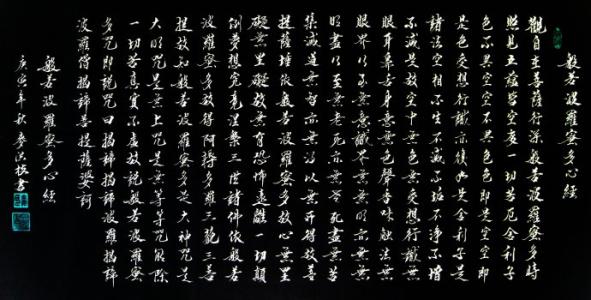 般若波羅蜜多心經
觀自在菩薩行深般若波羅蜜多時
照見五蘊皆空度一切苦厄舍利子
色不異空空不異色色即是空空即
是色受想行識亦復如是舍利子是
諸法空相不生不滅不垢不淨不增
不減是故空中無色無受想行識無
眼耳鼻舌身意無色聲香味觸法無
眼界乃至無意識界無無明亦無無
明盡乃至無老死亦無老死盡無苦
集滅道無智亦無得以無所得故菩
提薩埵依般若波羅蜜多故心無罣
礙無罣礙故無有恐怖遠離一切顛
倒夢想究竟涅槃三世諸佛依般若
波羅蜜多故得阿耨多羅三藐三菩
提故知般若波羅蜜多是大神咒是
大明咒是無上咒是無等等咒能除
一切苦真實不虛故說般若波羅蜜
多咒即說咒曰揭諦揭諦波羅揭諦
波羅僧揭諦菩提薩婆訶
般若波羅蜜多心經
庚寅年秋書